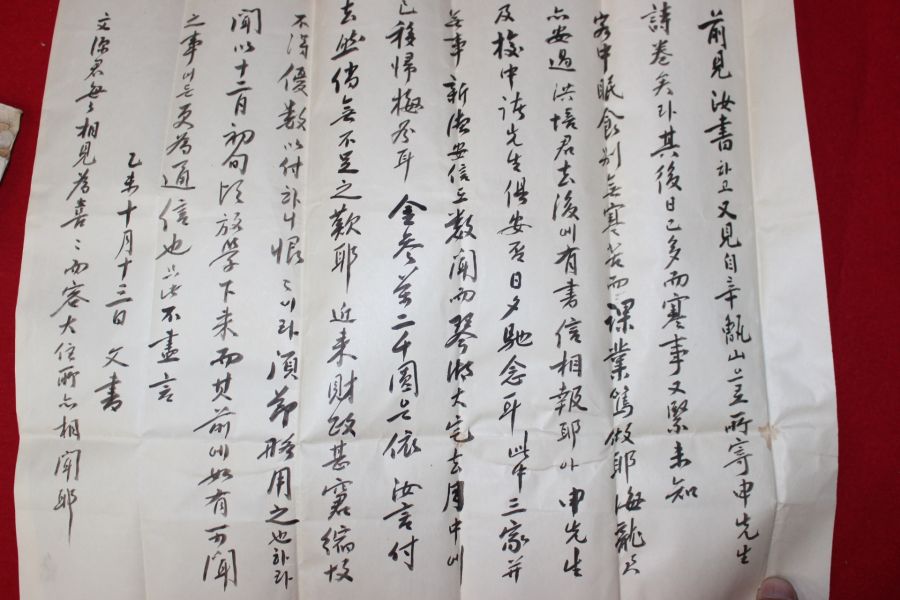 前見 汝書하고 又見自辛甑山으로 所寄申先生
詩卷矣라 其後日已多而寒事又緊未知
客中眠食別無寒苦而課業篤做耶 海龍
亦安過 洪 君去後에 有書信相報耶아 申先生
及校中諸先生俱安否 日夕馳念耳 此中三家并
無事 新 安信 數聞而琴 大宅去月中에
已移歸 耳 金參萬二千圓은 依 汝言付
去 倘無不足之歎耶 近來財政甚窘 故
不得優數以付하니 恨 이라 須節 用之也하라
聞以十二月初旬 放學下來而其前에 如有可聞
之事어든 更為通信也 只此不盡言
乙未十月十三日 父書
文源君每每相見為喜 而容大住所亦相聞耶